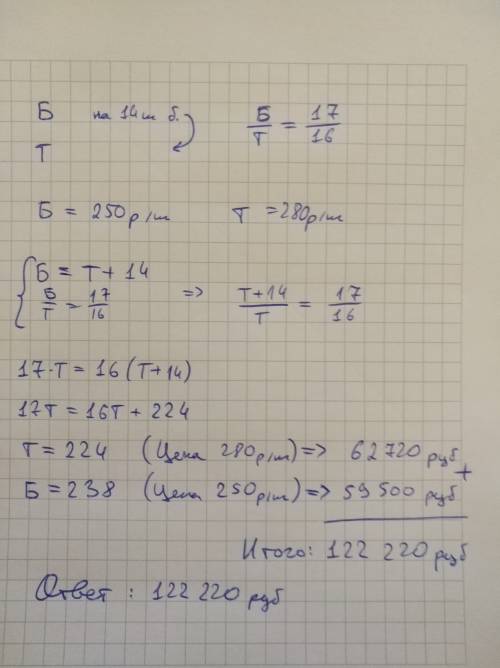 Б на 14 ш б. Б/Т = 17/16
Т
Б = 250 р/ш Т = 280 р/ш
{ Б = Т + 14
Б/Т = 17/16 => Т+14/Т = 17/16
17·Т = 16 (Т+14)
17Т = 16Т + 224
Т = 224 (Цена 280 р/ш) => 62 720 руб +
Б = 238 (Цена 250 р/ш) => 59 500 руб
Итого: 122 220 руб
Ответ : 122 220 руб